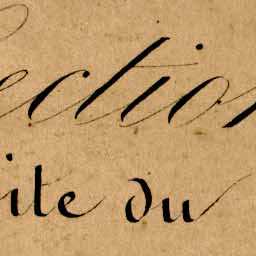 ection
ite du